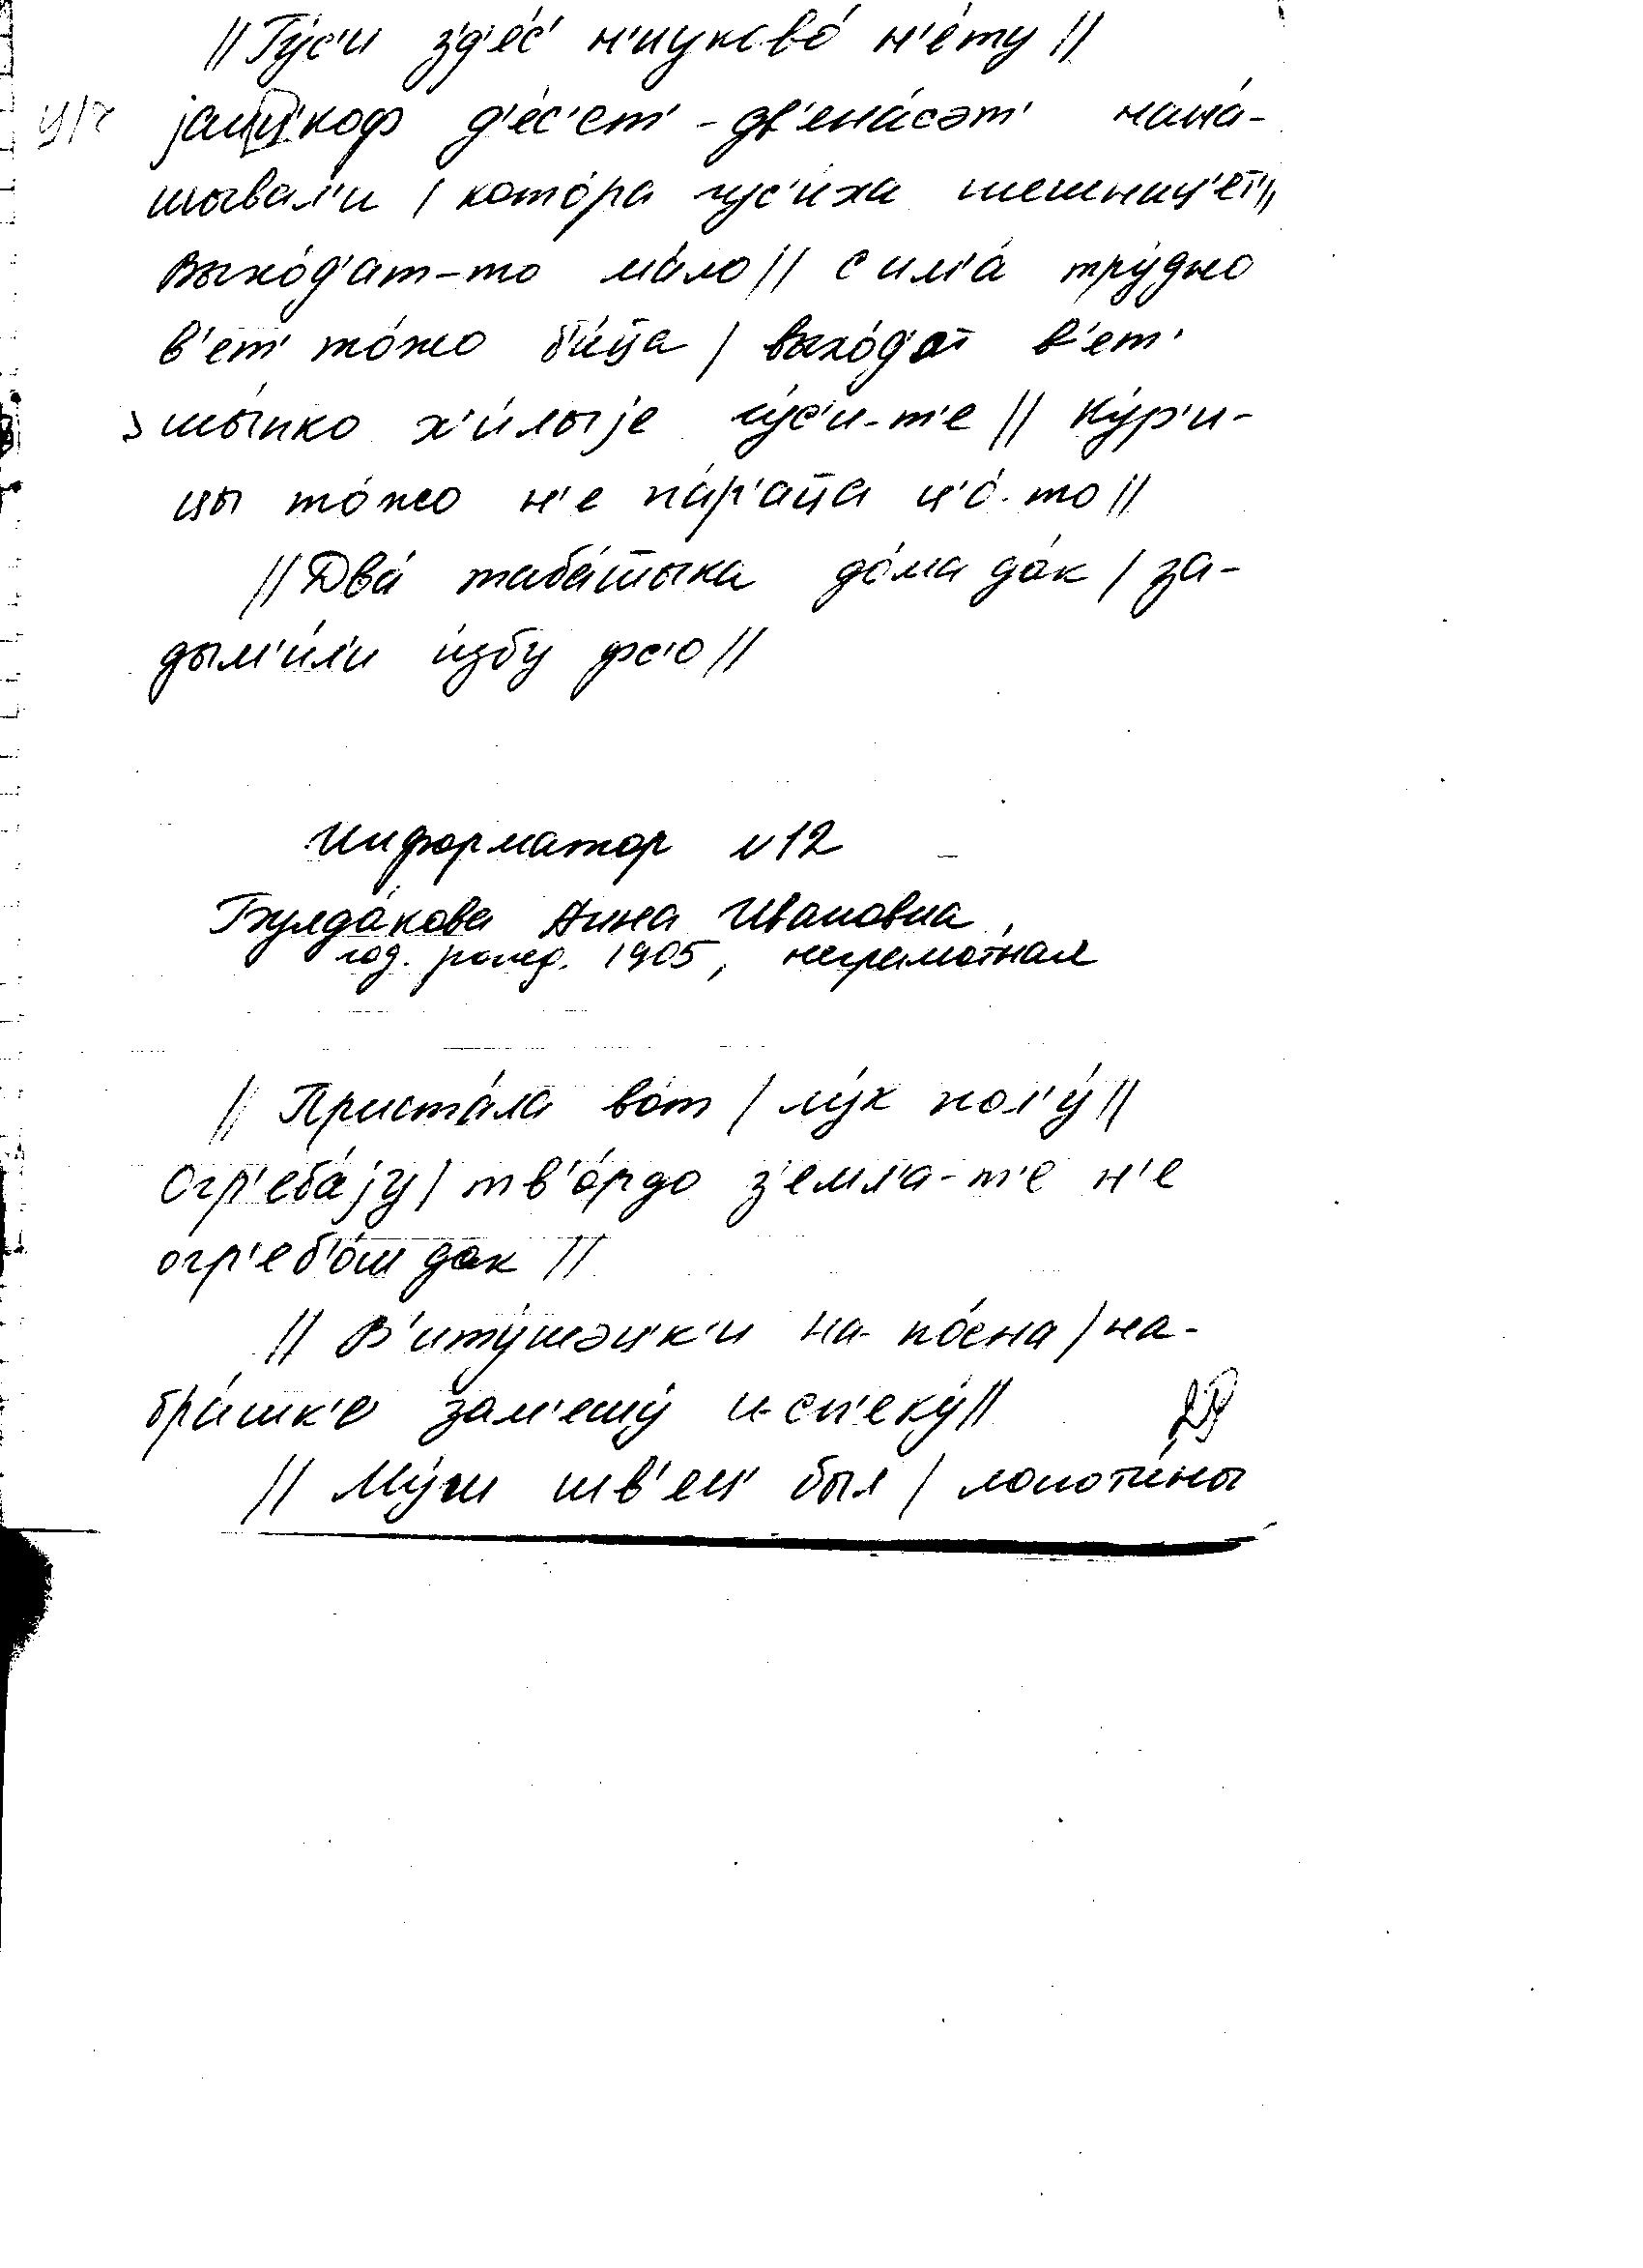 || Гу́с'и з'д'е́с' н'иуково́ н'е́ту ||
jаиц'коф д'е́с'ет' - дв'ена́сəт' нашá-
шывал'и | кото́ра гус'и́ха шешниц'ет ||
Выхо́д'ат-то ма́ло || с им'а́ тру́дно
в'ет' то́жо би́ца | выхо́д'ат в'ет'
шы́пко х'и́лыjе гу́с'и-т'е || Ку́р'и-
цы то́жо н'е па́р'аца ц'о́-то ||
|| Два́ таба́тыка до́ма да́к | за-
дым'и́л'и и́збу фс'о ||
Информатор N 12
Булда́кова Анна Ивановна,
год. рожд. 1905, неграмотная
|| Приста́ла во́т | лу́к пол'у́ ||
Огр'еба́jу | тв'о́рдо з'емл'а-т'е н'е
огр'еб'о́ш дак ||
|| В'иту́шəц'к'и на по́сна | на-
бра́шк'е зам'ешу́ и-сп'еку́ ||
|| Му́ш шв'ец' был | лопоти́ны